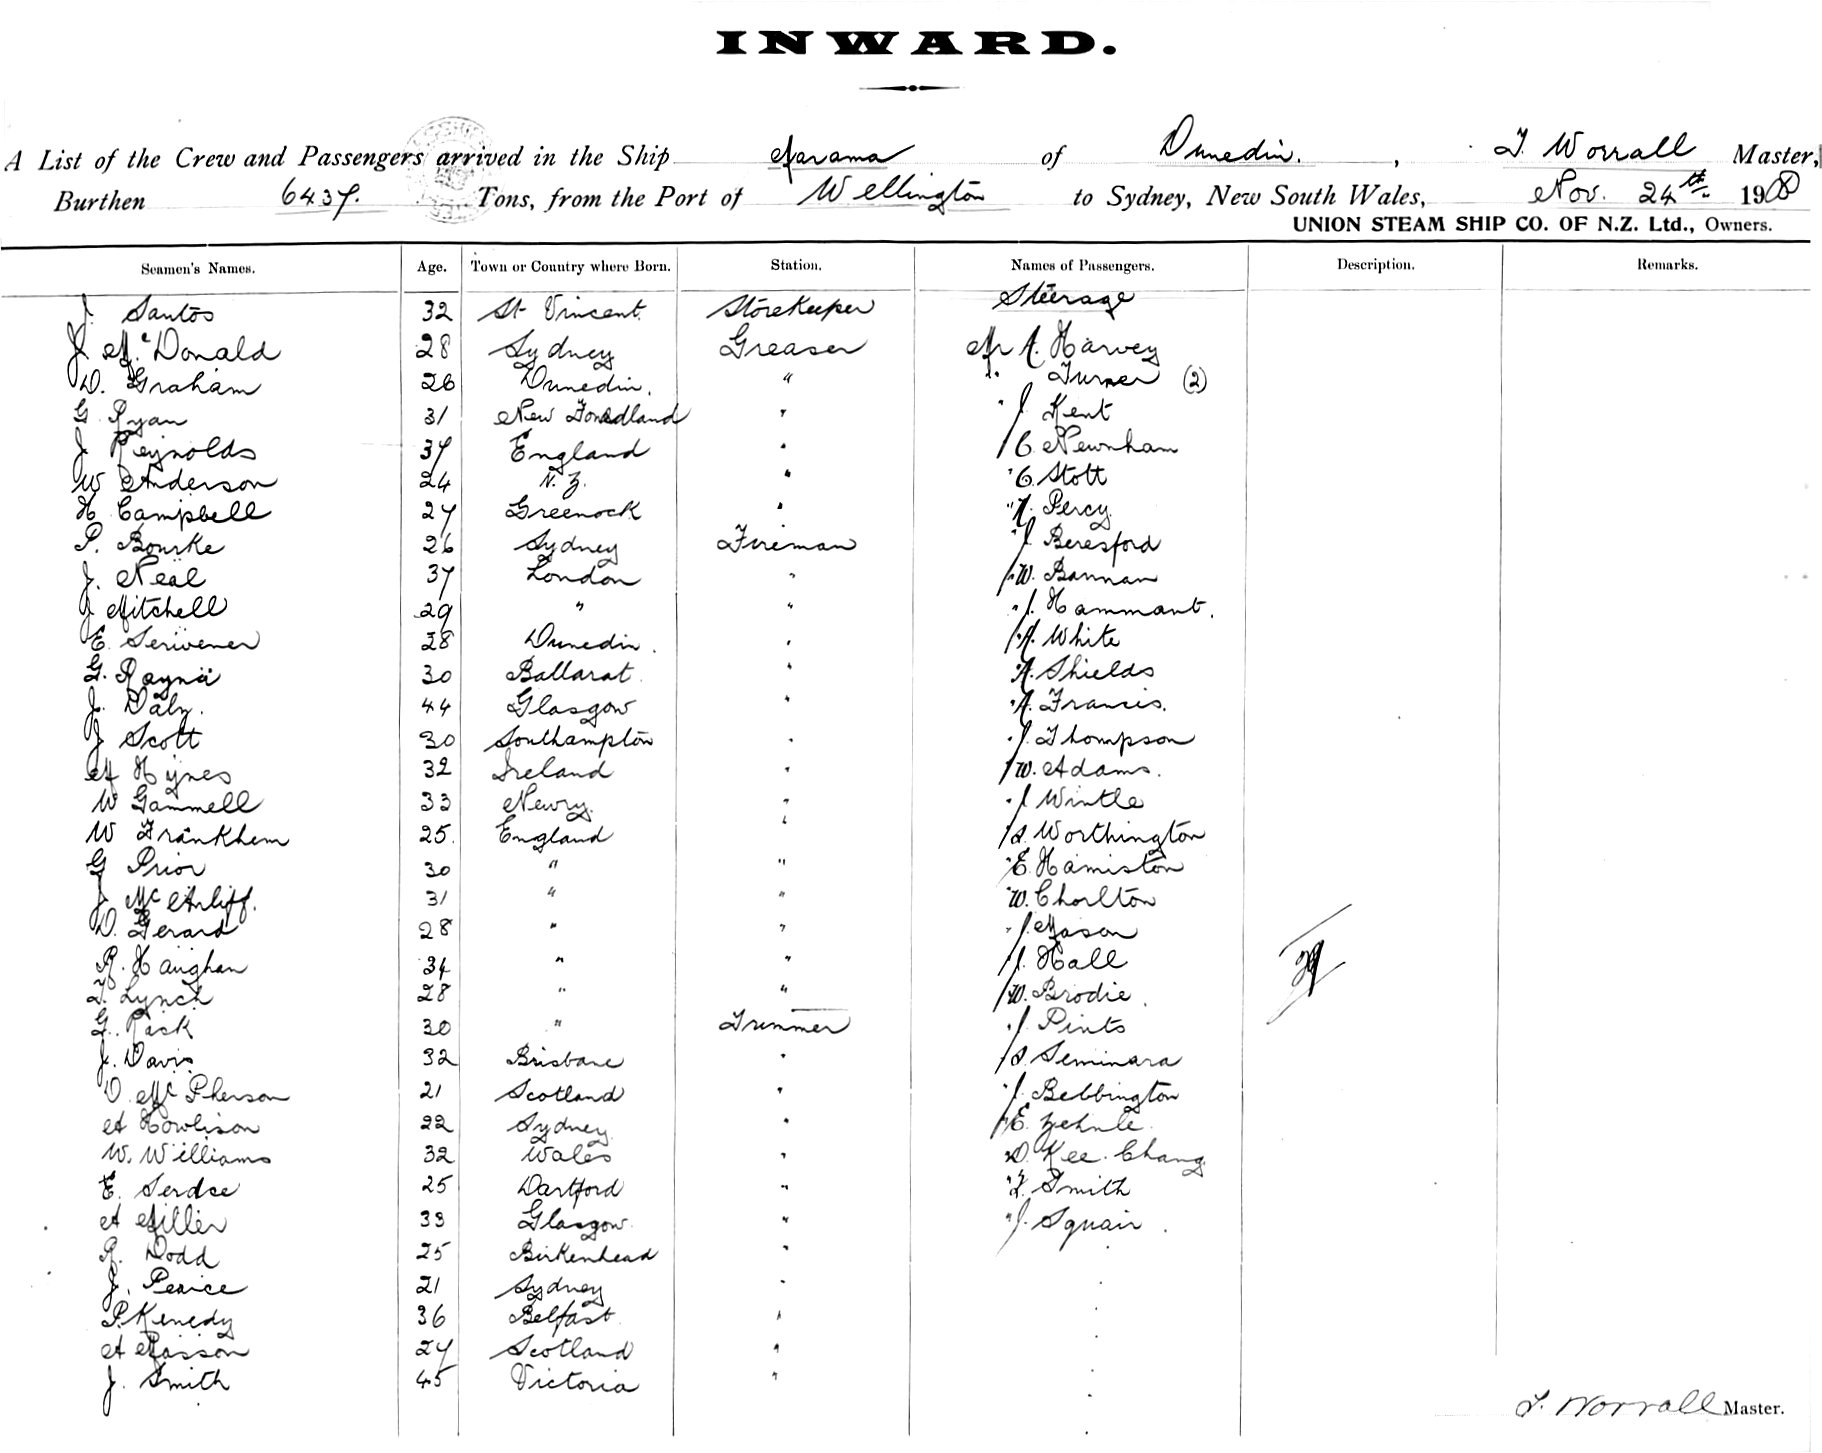 INWARD.
A List of the Crew and Passengers arrived in the Ship Marama of Dunedin. , T. Worrall Master,
Burthen 6437. Tons, from the Port of Wellington to Sydney, New South Wales, Nov. 24th 1908
UNION STEAM SHIP CO. OF N.Z. Ltd., Owners.
Seamen's Names. Age. Town or Country where Born. Station. Names of Passengers. Description. Remarks.
J. Santos 32 St Vincent. Storekeeper Steerage
J McDonald 28 Sydney Greaser Mr A. Harvey
D. Graham 26 Dunedin. " " Turner (2)
G Ryan 31 New Foundland " " J Kent
J Reynolds 37 England " " C. Newnham
W Anderson 24 N.Z. " " C. Stott
H Campbell 27 Greenock " " A. Percy
P. Bourke 26 Sydney Fireman " J Beresford
J. Neal 37 London " " W. Bannan
J Mitchell 29 " " " J. Hammant.
E. Scrivener 28 Dunedin. " " A. White
G. 30 Ballarat. " " A. Shields
J. Daly. 44 Glasgow " " A. Francis.
J Scott 30 Southampton " " J Thompson
M Hynes 32 Ireland " " W. Adams.
W Gammell 33 Newry. " " J Wintle
W Frankhem 25. England " " S. Worthington
G Prior 30 " " " E. Hamiston
J McAuliff. 31 " " " W. Chorlton
D. Gerard 28 " " " J. Mason
R. Haughan 34 " " " J. Hall
T. Lynch 28 " " " W. Brodie.
G. Rask 30 " Trimmer " J. Pints
J. Davis 32 Brisbane " " S. Seminara
D. McPherson 21 Scotland " " J. Bebbington
A Howlison 22 Sydney " " E. Zehnle.
W. Williams 32 Wales " " D. Kee. Chang
E. Serdce 25 Dartford " " F. Smith
A Miller 33 Glasgow. " " J. Squair.
R. Dodd 25 Birkenhead "
J. Pearce 21 Sydney "
P. Kenedy 36 Belfast "
A Masson 27 Scotland "
J. Smith 45 Victoria "
T. Worrall Master.